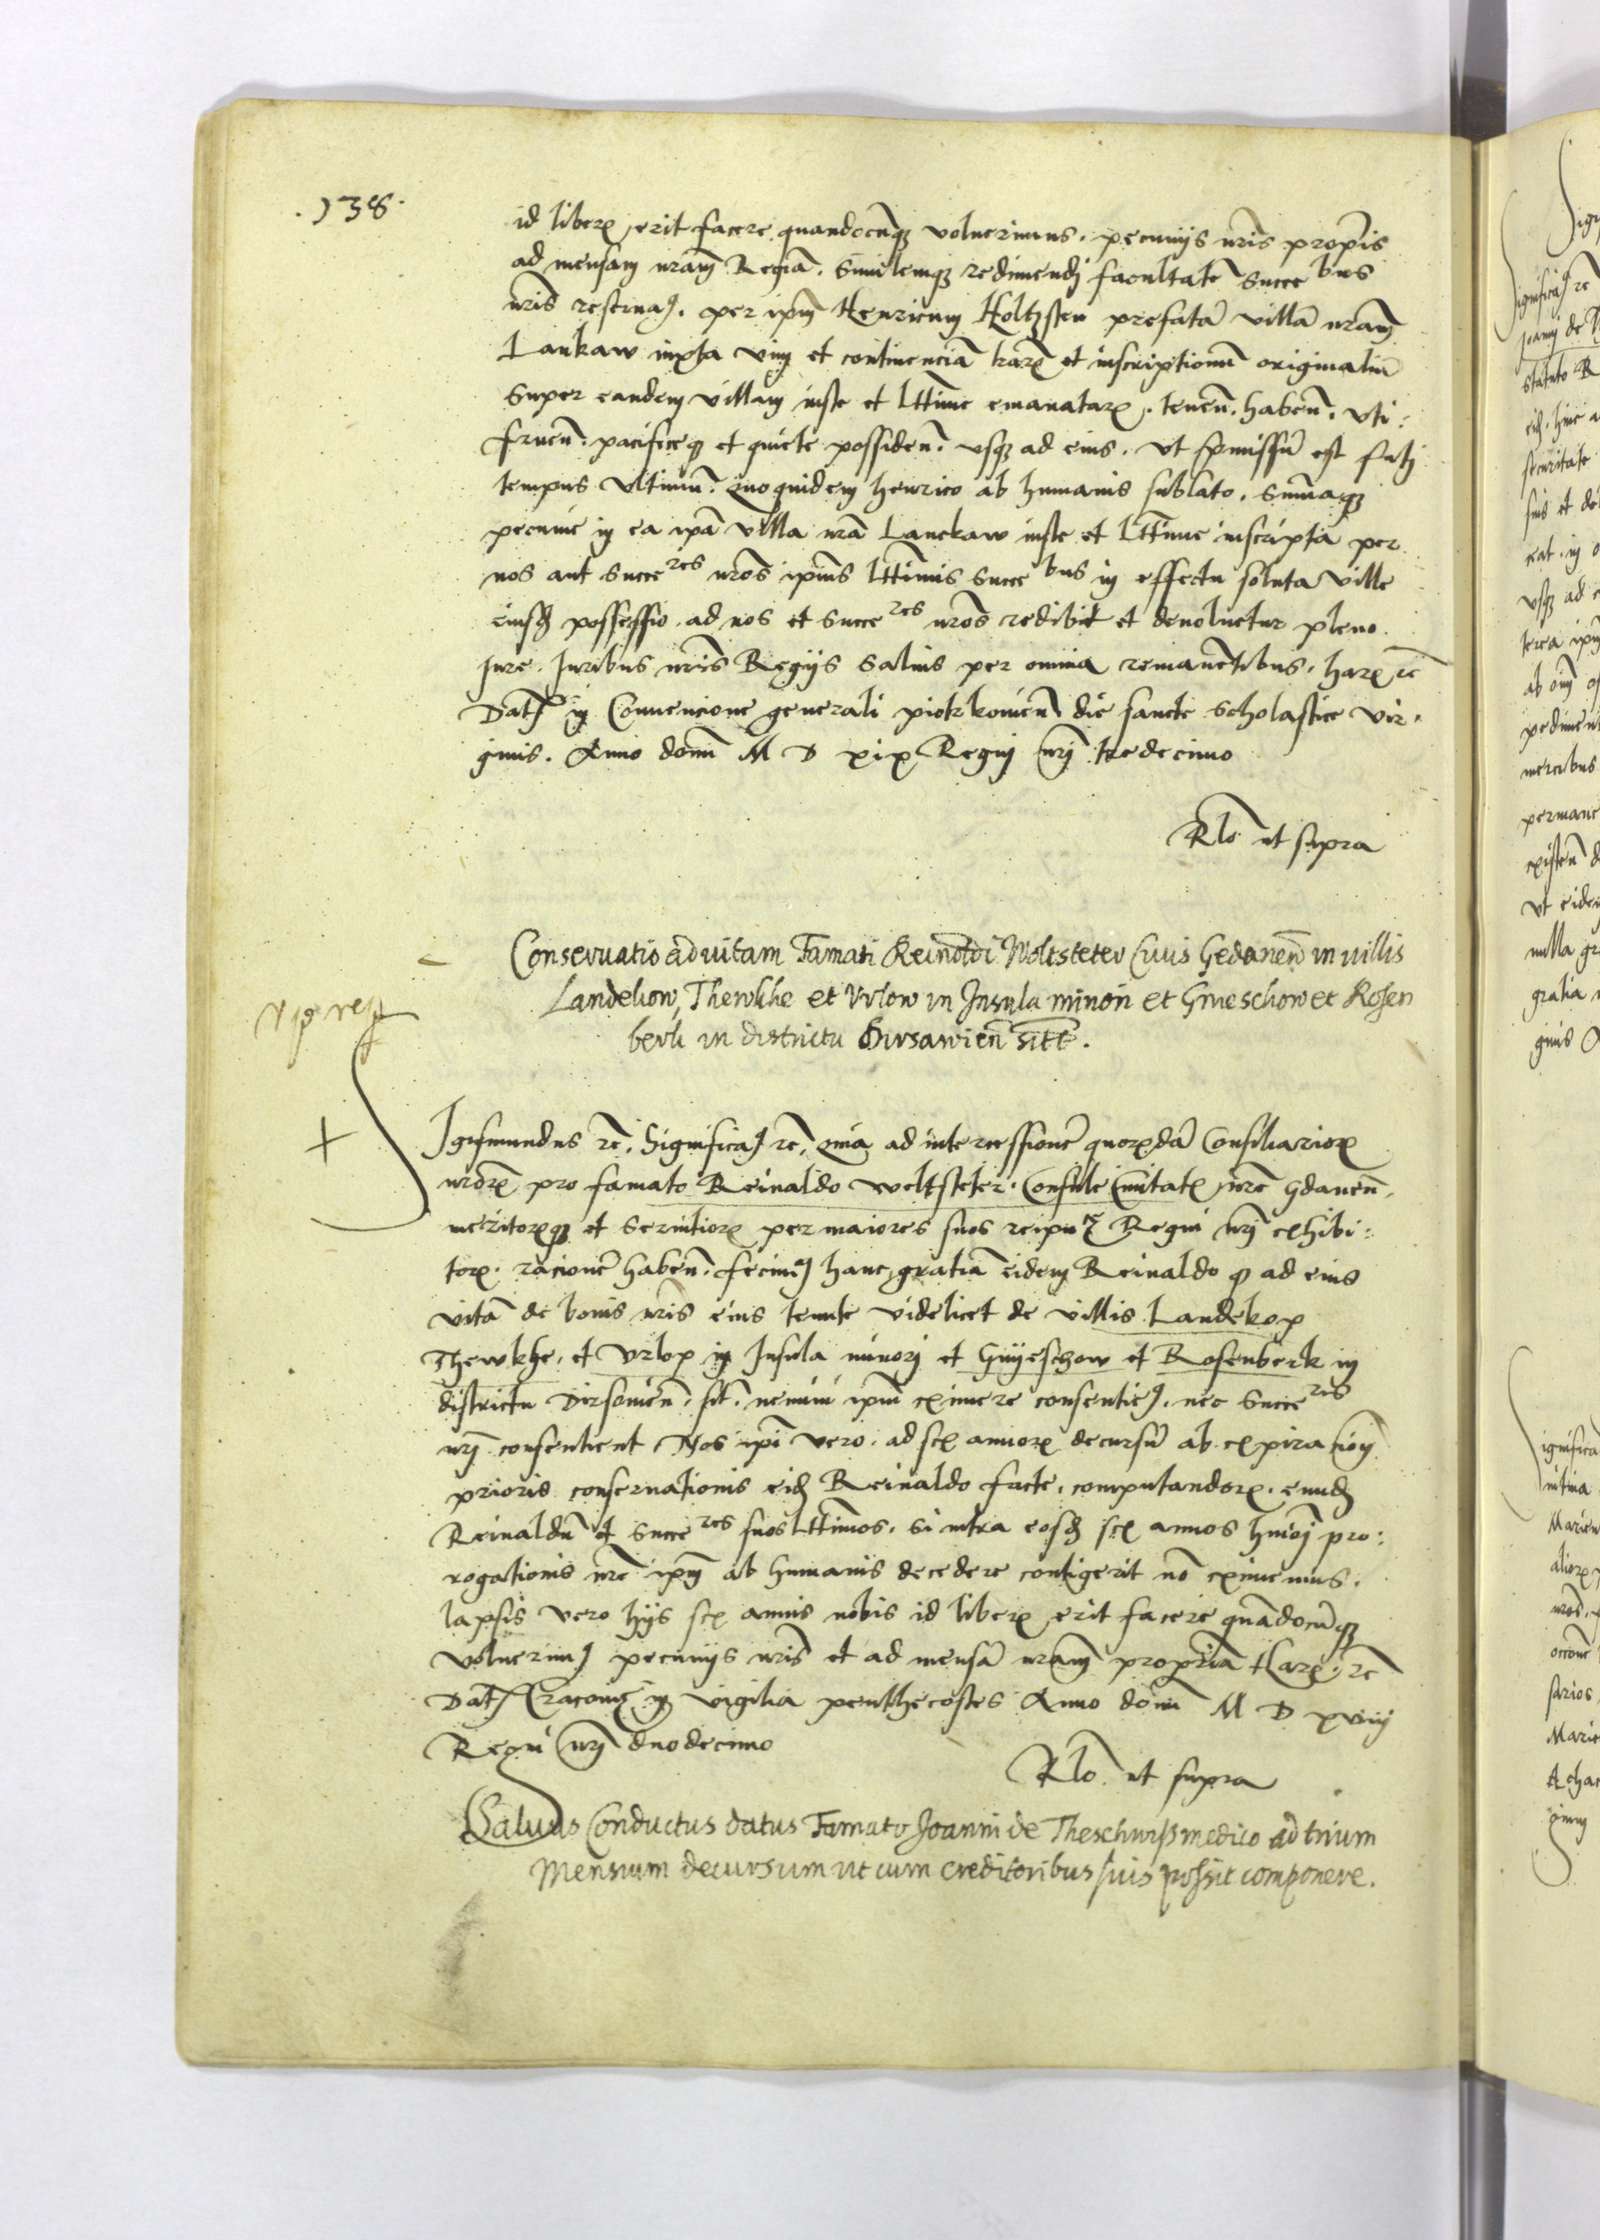 138
id liberū erit facere quandocūqȝ voluerimus. pecunijs nr̄is propr̄is
ad mensam nrā̄m Regiā. Similemqȝ redimendi facultatē Succebus
nr̄is reserua9. per ipm̄ Henricum Holtzsten prefatā villā nrā̄m
Lankaw iuxta vim et continenciā lrarꝝ et inscriptionū originaliū
Super eandem villam iuste et lttime emanatarꝝ. tenēn. habēn. Vti:
fruēn. pacificeqȝ et quiete possidēn. vsqȝ ad eius. Vt pmissū est
tempus vltimū. Quoquidem henrico ab humanis sublato. Summaqȝ
pecunie in ea ipā villa nrā Lanckaw iuste et lttime inscripta per
nos aut Succeres nr̄os ipius lttimis Succebus in effectu soluta Ville
eiusd possessio. ad nos et Succeres nr̄os redibit et deuoluetur pleno
Jure. Juribus nr̄is Regijs Saluis per omnia remanētibus. harꝝ rē
Dat9 in Conuencione generali piotrkouiēn die sancte Scholastice vir.
ginis. Anno domī M D xix Regni nr̄j tredecimo
Rlo ut supra
Conseruatio ad uitam Famati Reinoldi Woltsteter Ciuis Gedanen̄ in uillis
Landekow, Thewkhe et Vrlow in Insula minori et Gnieschow et Rosen
berk in districtu Dirsawien̄ sitt̄.
Sigismundus rē, Significa9 rē, Quia ad intercessionē quorꝝdā Consiliariorꝝ
nr̄orꝝ pro famato Reinaldo woltsteter. Consule Ciuitatꝭ nr̄e Gdanēn.
meritorꝝqȝ et Seruitiorꝝ per maiores suos reipu Regni nr̄j exhibi:
torꝝ. racionē habēn. fecim9 hanc gratiā eidem Reinaldo qȝ ad eius
vitā de bonis nr̄is eius tente videlicet de villis Landekop
Thewkhe. et Vrlop in Insula minorj et Gnyeschow et Rosenberk in
districtu Dirsouiēn. sit. nemini ipm̄ eximere consentie9. nec Succeres
nr̄j consentient Nos ipi vero. ad sex annorꝝ decursū ab expiracioē
prioris conseruationis eid Reinaldo facte. computandorꝝ. eund
Reinaldū et Succeres suos lttimos. Si intra eosd sex annos hmōi pro:
rogationis nr̄e ipm̄ ab humanis decedere contigerit nō eximemus.
lapsis vero hijs sex annis nobis id liberū erit facere quādocūqȝ
voluerim9 pecunijs nr̄is et ad mensā nrā̄m propriā Harꝝ. rē
Dat9 Cracouie in vigilia penthecostes Anno domī M D xviij
Regni nr̄j duodecimo
Rlo ut supra
Saluus Conductus datus Famato Joanni de Theschniß medico ad trium
Mensium decursum ut cum creditoribus suis possit componere.